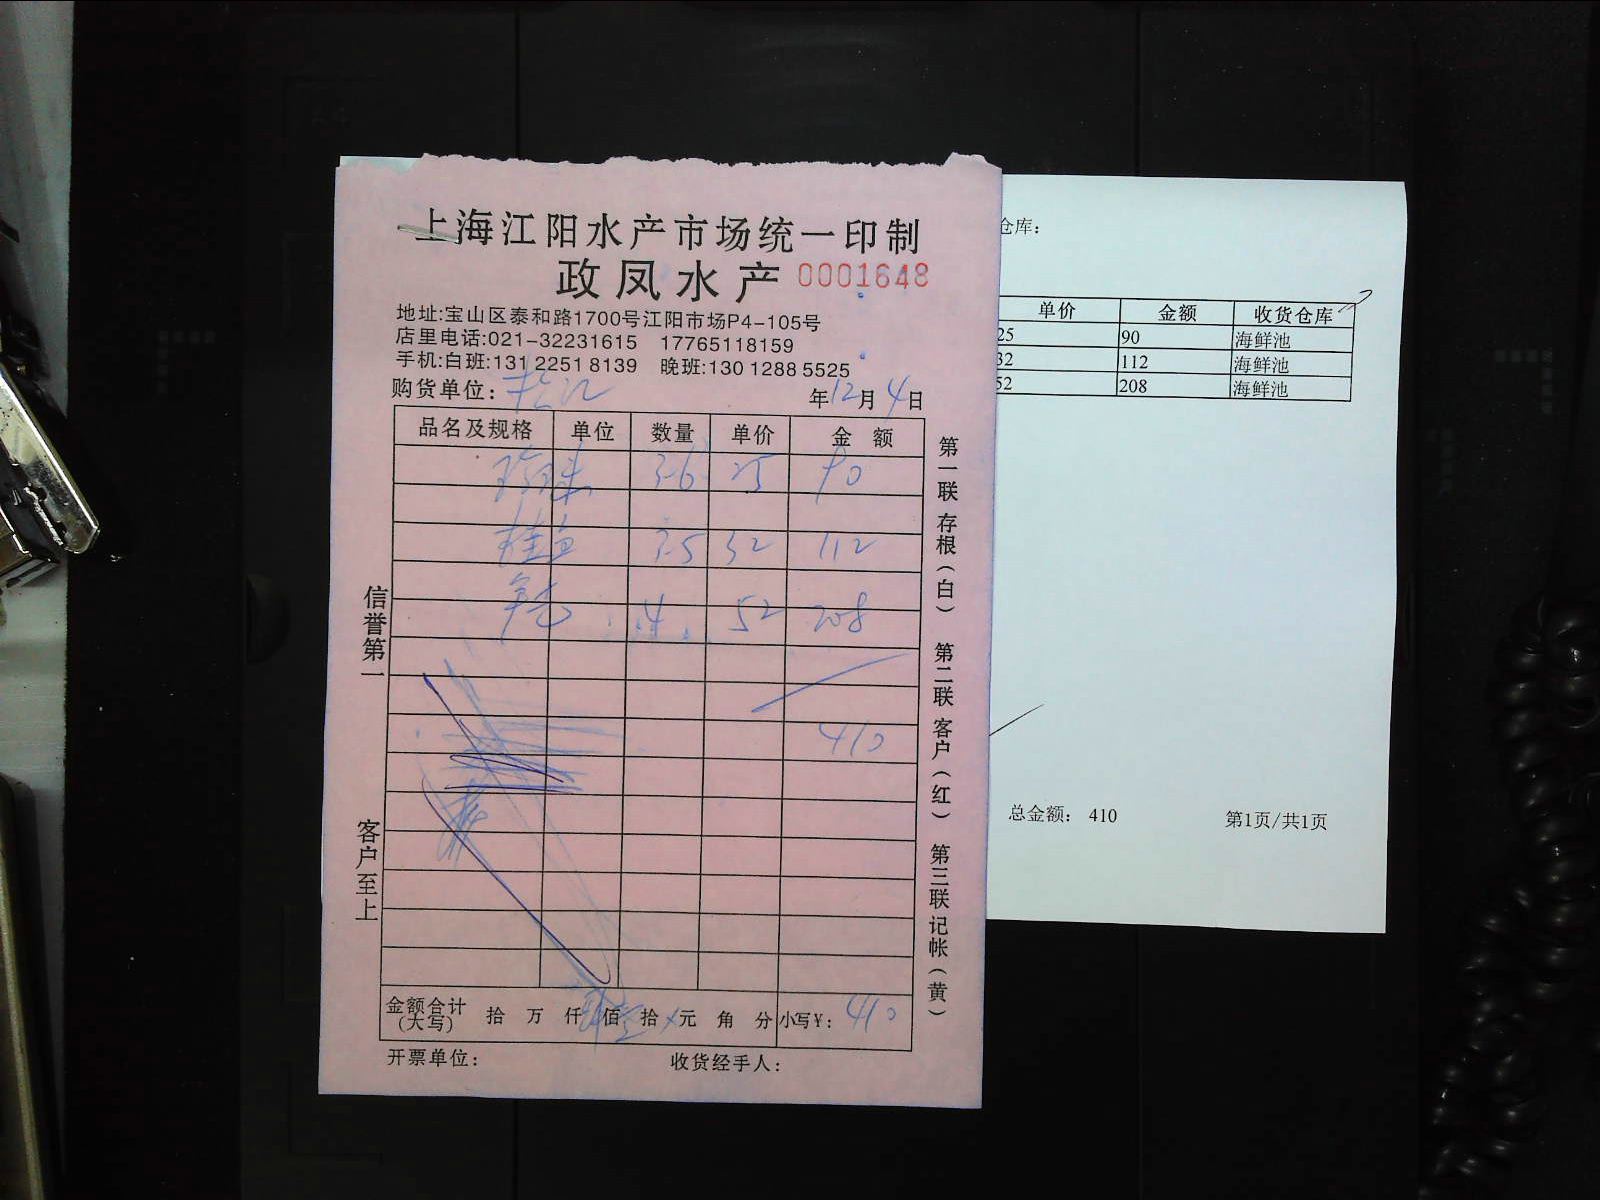 上海江阳水产市场统一印制
政凤水产 0001648
地址:宝山区泰和路1700号江阳市场P4-105号
店里电话:021-32231615 17765118159
手机:白班:131 2251 8139 晚班:130 1288 5525
购货单位: 年12月4日
品名及规格 单位 数量 单价 金额
3.6 25 90
桂鱼 3.5 32 112
4 52 208
410
金额合计(大写) 拾 万 仟 佰 拾 元 角 分 小写¥: 410
开票单位: 收货经手人:
信誉第一
客户至上
第一联存根(白) 第二联客户(红) 第三联记帐(黄)
仓库:
单价 金额 收货仓库
25 90 海鲜池
32 112 海鲜池
52 208 海鲜池
总金额: 410 第1页/共1页